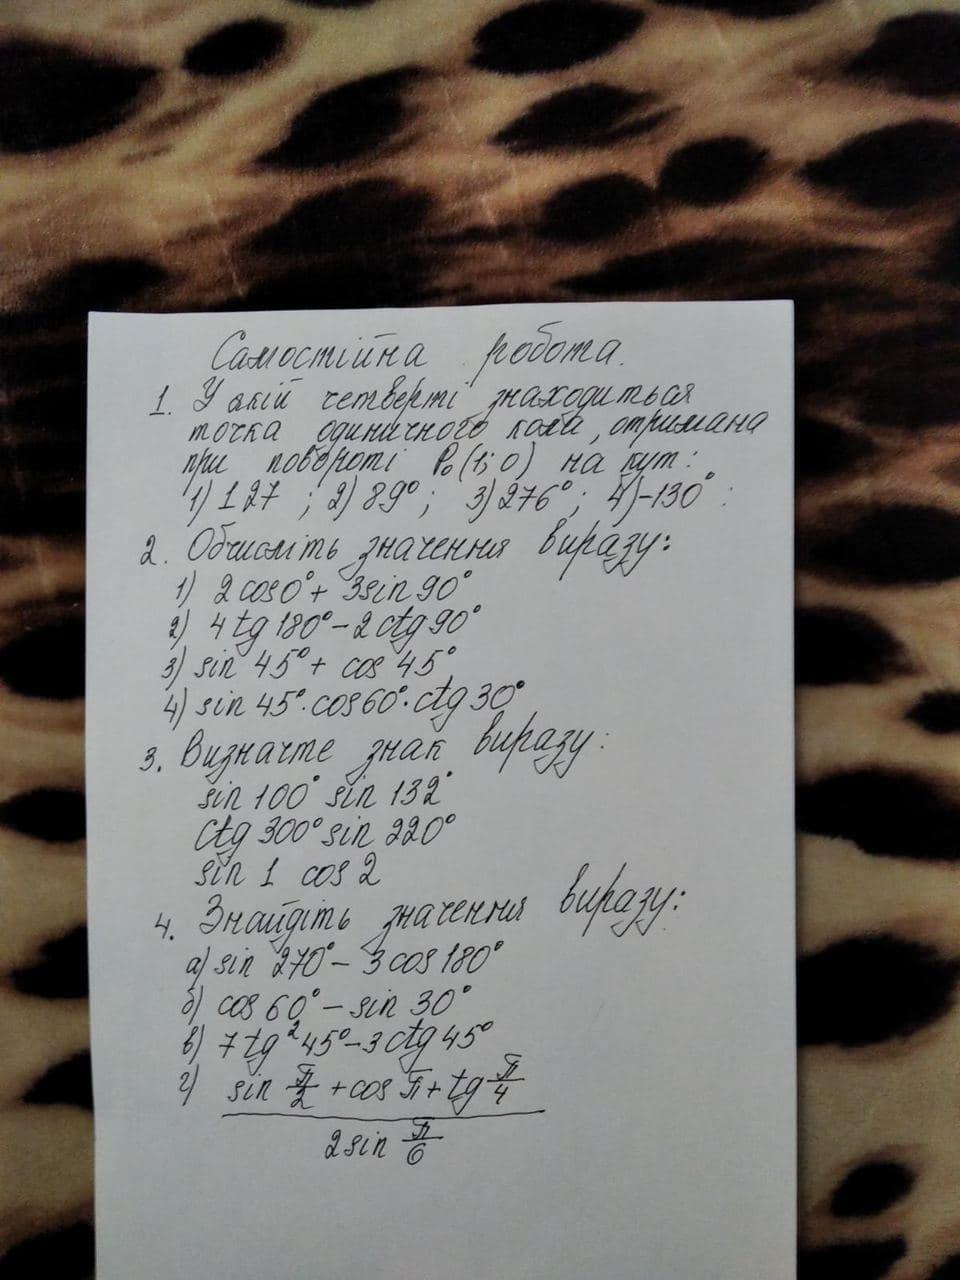 Самостійна робота.
1. У якій четверті знаходиться
точка одиничного кола, отримана
при повороті P₀(1;0) на кут:
1) 127 ; 2) 89°; 3) 276°; 4) -130°:
2. Обчисліть значення виразу:
1) 2 cos0° + 3sin 90°
2) 4 tg 180° - 2 ctg 90°
3) sin 45° + cos 45°
4) sin 45°·cos60°·ctg 30°
3. Визначте знак виразу:
sin 100° sin 132°
ctg 300° sin 220°
sin 1 cos 2
4. Знайдіть значення виразу:
а) sin 270° - 3 cos 180°
б) cos 60° - sin 30°
в) 7 tg² 45° - 3 ctg 45°
г) sin π/2 + cos π + tg π/4
2 sin π/6